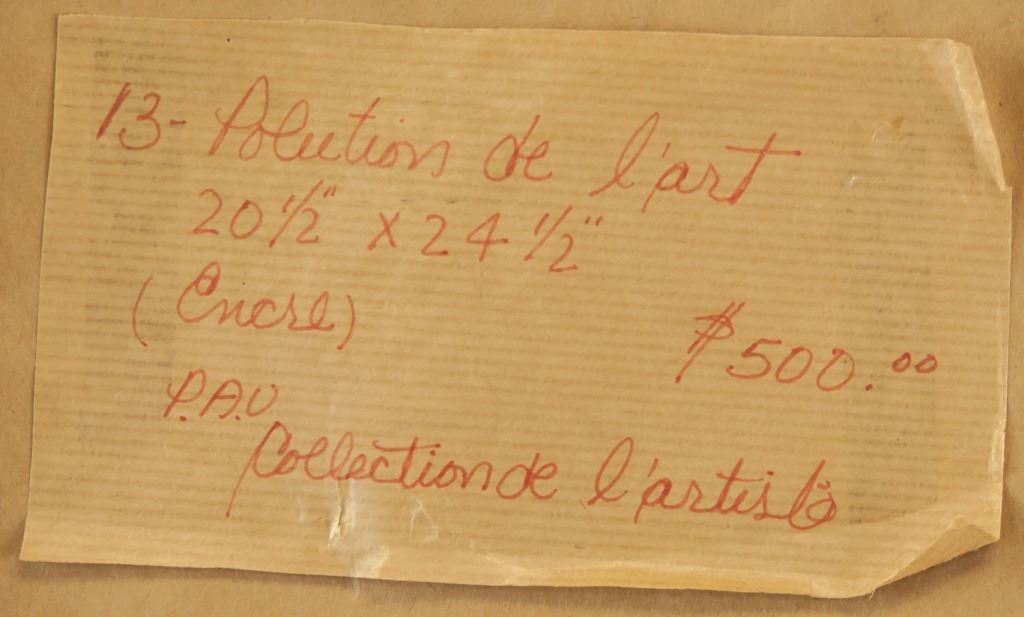 13- Polution de l'art
20 1/2" x 24 1/2"
(Encre)
$500.00
P.A.U
Collection de l'artiste